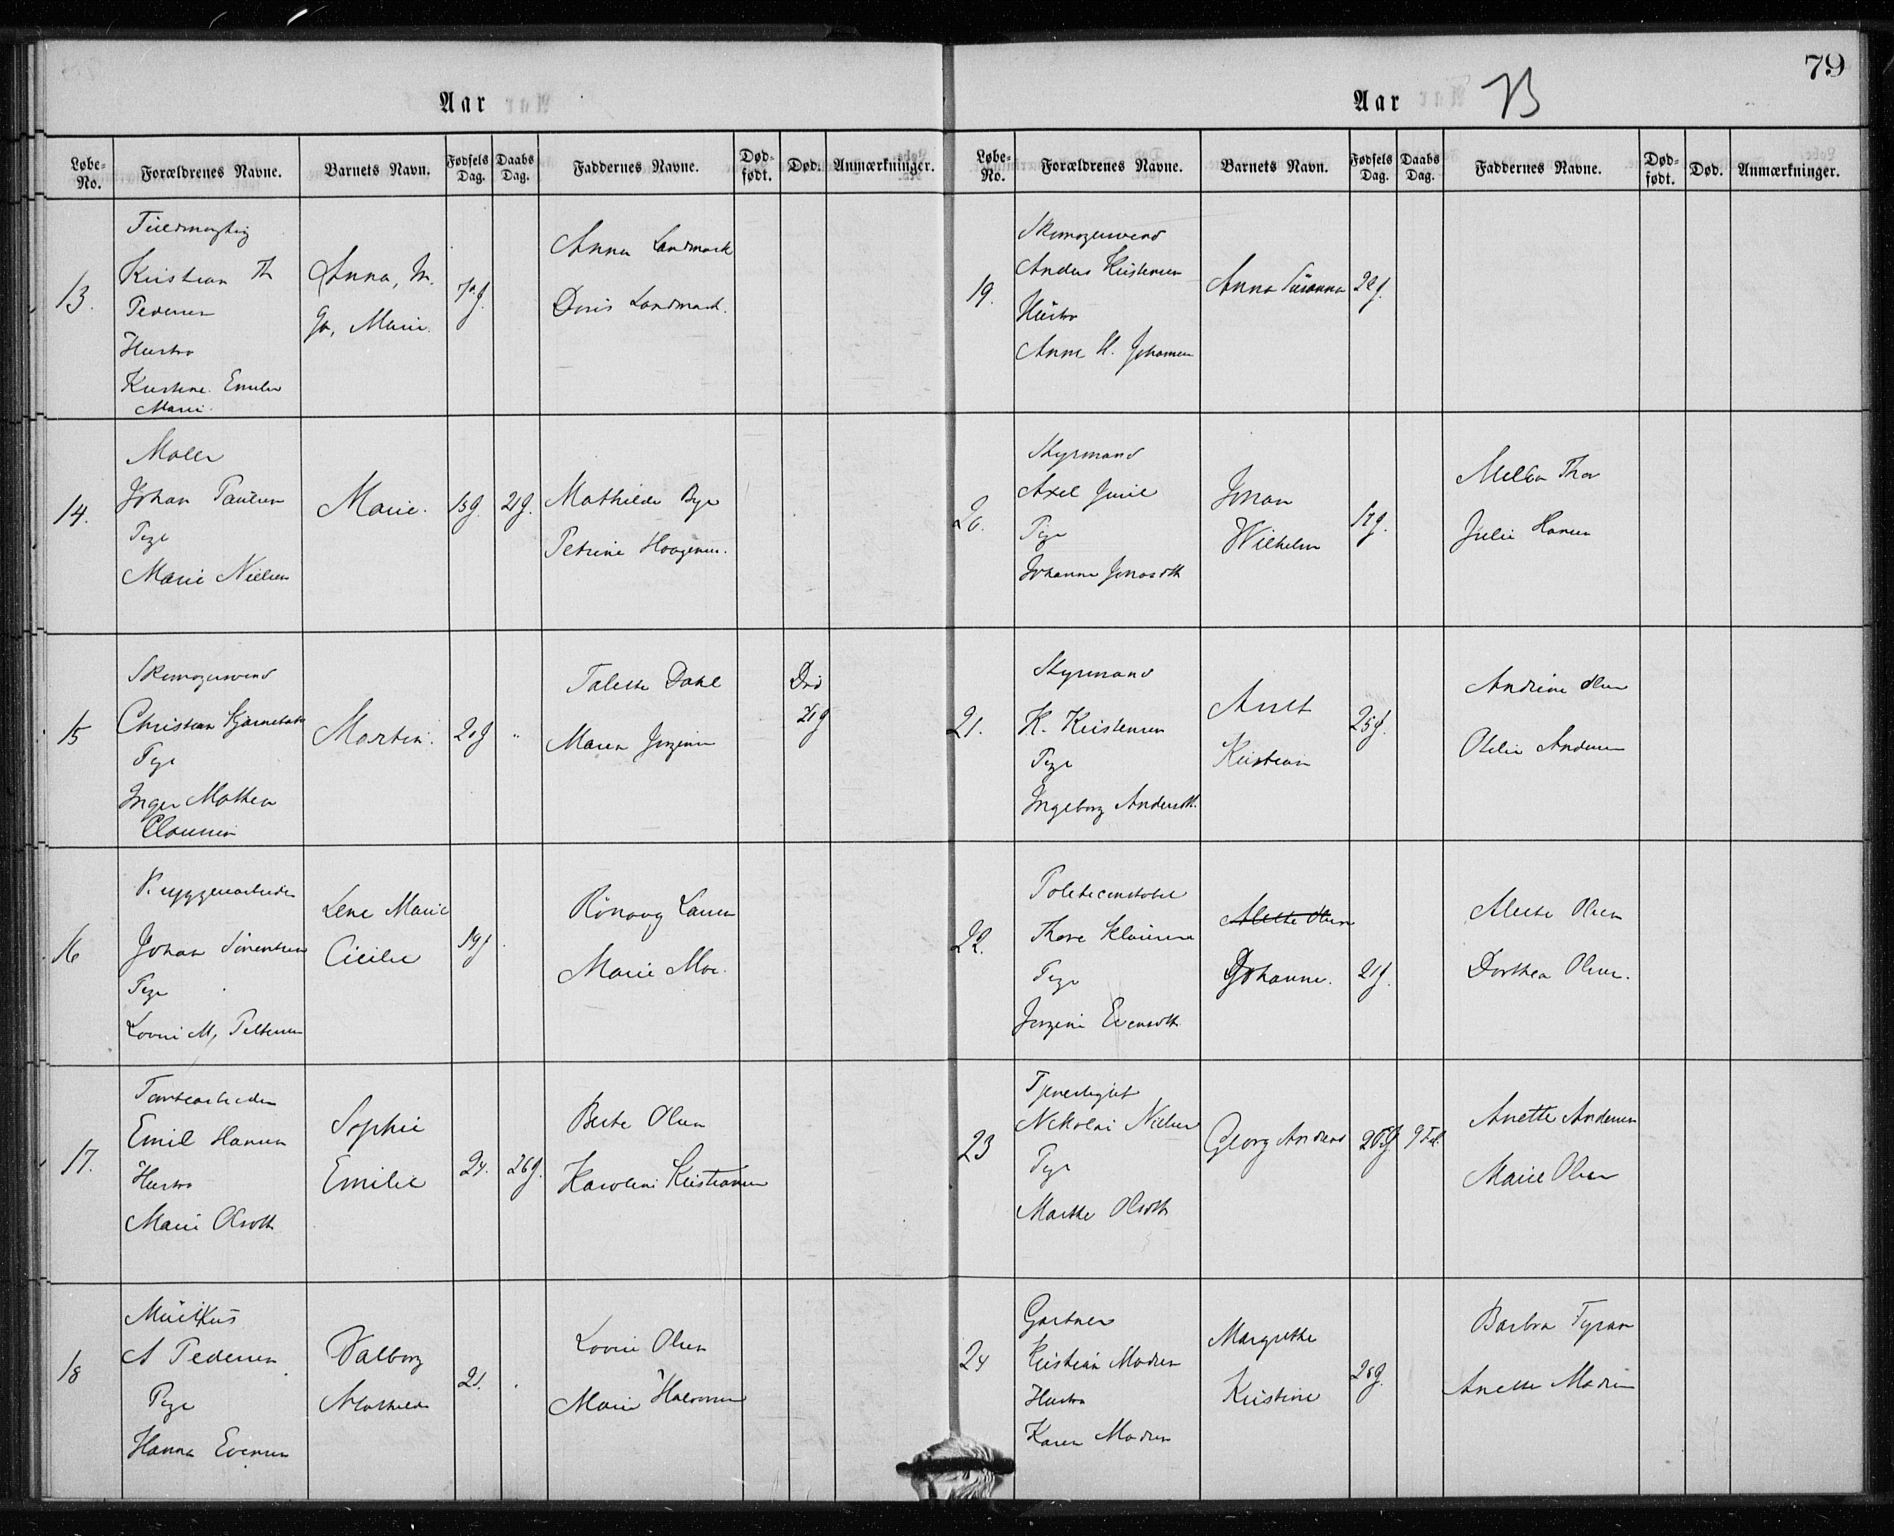 79
Aar
Løbe-No. Forældrenes Navne. Barnets Navn. Fødsels Dag. Daabs Dag. Faddernes Navne. Død-født. Død. Anmærkninger.
13.
Kristian Th
Pedersen
Hustro
Kristine Emilie
Marie
Anna, M.
Ga, Marie.
Anna Landmark
Doris Landmark.
14.
Maler
Johan Paulsen
Pige
Marie Nielsen
Marie.
15J. 21J.
Mathilde Bye
Petrine Haagensen.
15
Skomagersvend
Christian
Pige
Inger Mathea
Clausen
Martin.
Talette Dahl
Maren Jørgensen
Død
16
Bryggeriarbeider
Johan Sørensen
Pige
Lovise M, Pettersen
Lene Marie
Cicilie
19J
Rönaug Larsen
Marie Moe.
17.
Emil Hansen
Hustro
Marie Olsdth
Sophie
Emilie
24. 26J.
Berte Olsen
Karoline Kristiansen
18
Musikus
A Pedersen
Pige
Hanna Evensen
Valborg
Mathilde
21.
Lovise Olsen
Marie Halvorsen
Aar 73
Løbe-No. Forældrenes Navne. Barnets Navn. Fødsels Dag. Daabs Dag. Faddernes Navne. Død-født. Død. Anmærkninger.
19.
Skomagersvend
Anders Kristensen
Hustro
Anne H. Johansen
Anna Susanna
22J.
20.
Styrmand
Axel Juul
Pige
Johanne Jonasdth
Johan
Wilhelm
17J.
Melba Thor
Julie Hansen
21.
Styrmand
K. Kristensen
Pige
Ingeborg Andersdth.
Anet
Kristian
25J.
Andrine Olsen
Otilie Andersen
22.
Politiconstabel
Thore Klausen
Pige
Jørgine Evensdth
Alette Olsen
Johanne.
21J.
Alette Olsen
Dorthea Olsen.
23
Tjenestegut
Nikolai Nielsen
Pige
Marthe Olsdth
Georg Andreas
9 Feb.
Anette Andersen
Marie Olsen
24
Gartner
Kristian Madsen
Hustro
Karen Madsen
Margrethe
Kristine
26J.
Barbra Fyran
Anette Madsen